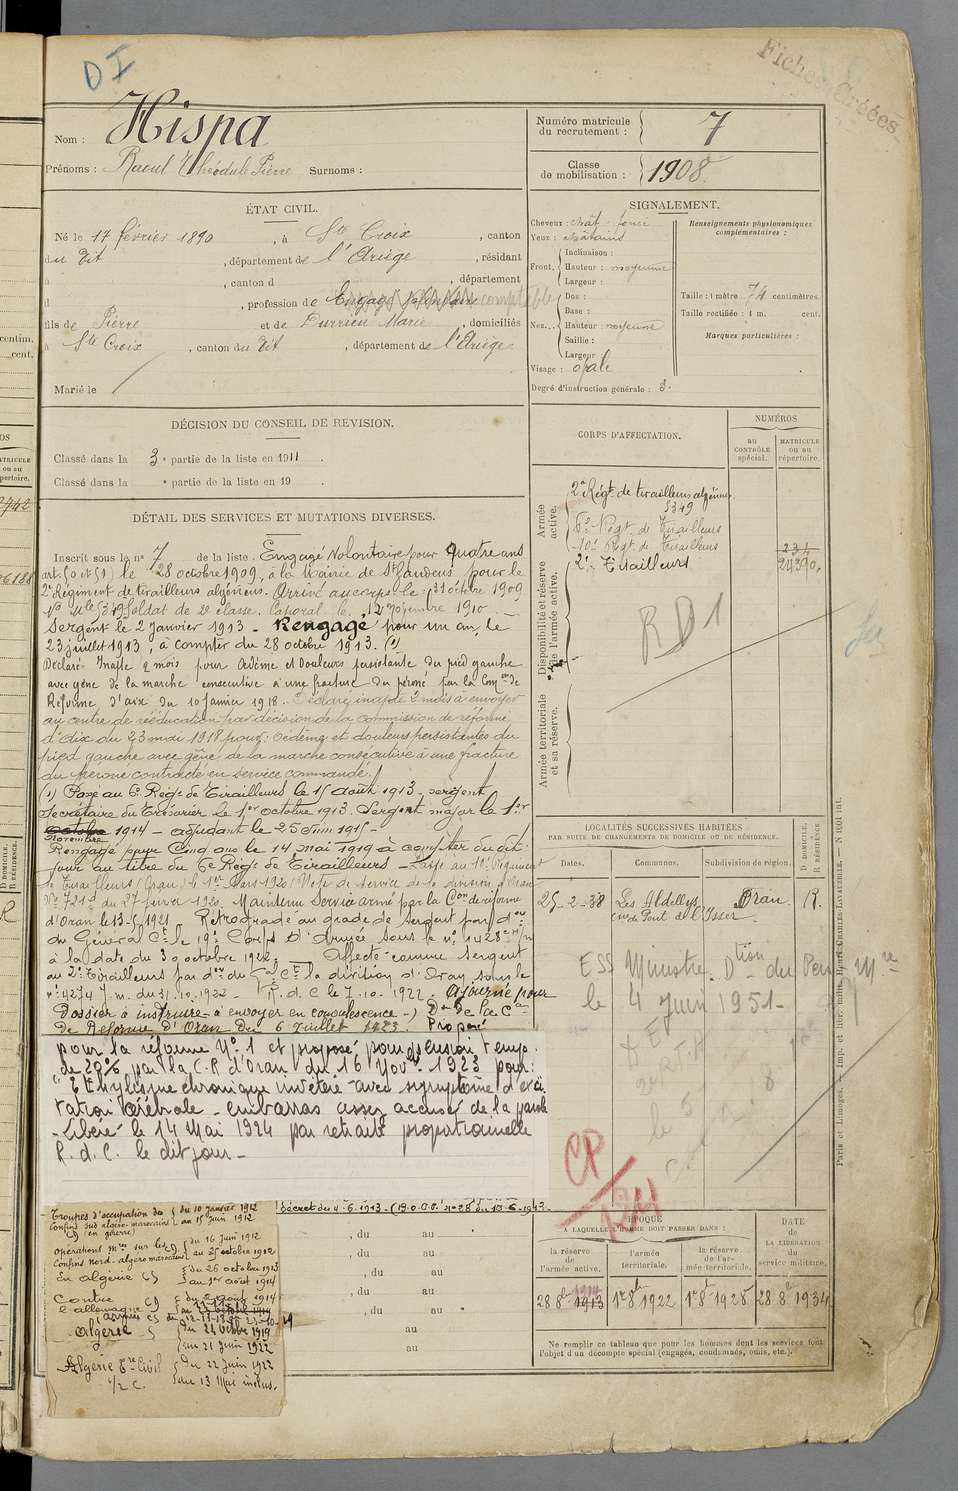 DI
Fiches Créées
Nom : Hispa
Prénoms : Raoul Théodule Pierre Surnoms :
Numéro matricule du recrutement : 7
Classe de mobilisation : 1908
ÉTAT CIVIL.
Né le 17 février 1890, à Ste Croix, canton
du dit, département de l'Ariège, résidant
à , canton d , département
d , profession de Engagé volontaire comptable
fils de Pierre et de Durrieu Marie, domiciliés
à Ste Croix, canton du dit, département de l'Ariège
Marié le
SIGNALEMENT.
Cheveux : chât. foncé
Yeux : châtains
Front. Inclinaison :
Hauteur : moyenne
Largeur :
Nez. Dos :
Base :
Hauteur : moyenne
Saillie :
Largeur
Visage : ovale
Degré d'instruction générale : 3
Renseignements physionomiques complémentaires :
Taille : 1 mètre 74 centimètres.
Taille rectifiée : 1 m. cent.
Marques particulières :
DÉCISION DU CONSEIL DE REVISION.
Classé dans la 3e partie de la liste en 1911.
Classé dans la e partie de la liste en 19 .
DÉTAIL DES SERVICES ET MUTATIONS DIVERSES.
Inscrit sous le no 7 de la liste. Engagé Volontaire pour quatre ans
le 28 octobre 1909, à la Mairie de St Gaudens pour le
2e Régiment de tirailleurs algériens. Arrivé au corps le 31 octobre 1909
No Mle 5349 Soldat de 2e classe. Caporal le 12 novembre 1910
Sergent le 2 Janvier 1913 - Rengagé pour un an, le
23 juillet 1913, à compter du 28 octobre 1913. (1)
Déclaré Inapte 2 mois pour Œdème et Douleurs persistante du pied gauche
avec gêne de la marche consécutive à une fracture du péroné par la Comon de
Réforme d'Aix du 10 Janvier 1918. Déclaré inapte 2 mois à envoyer
au centre de rééducation par décision de la commission de réforme
d'Aix du 23 mai 1918 pour : œdème et douleurs persistantes du
pied gauche avec gêne de la marche consécutive à une fracture
du péroné contracté en service commandé.
(1) Passé au 6e Régt de Tirailleurs le 15 août 1913, sergent
Secrétaire du Trésorier le 1er octobre 1913. Sergent major le 1er
octobre novembre 1914 - adjudant le 25 Juin 1915 -
Rengagé pour Cinq ans le 14 mai 1919 à compter du dit
jour au titre du 6e Régt de Tirailleurs - Passé au 10e Régiment
de Tirailleurs (Oran) le 1er Mars 1920 (Note de service de la division d'Oran
No 721 du 27 février 1920. Maintenu Service armé par la Con de réforme
d'Oran le 13-5-1921 Rétrogradé au grade de sergent par don
du Général Ct le 19e Corps d'Armée sous le no 1428
à la date du 3 octobre 1922. Affecté comme sergent
au 2e Tirailleurs par don du Gal Ct la division d'Oran sous le
no 4274 J.m. du 31.10.1922 - R.d.C le 7.10.1922. Ajourné pour
Dossier à instruire - à envoyer en convalescence -) Don de la Con
de Réforme d'Oran du 6 Juillet 1923. Proposé
pour la réforme No 1 et proposé pour pension temp.
de 20% par la C.R d'Oran du 16 Novbre 1923 pour :
"Ethylisme chronique invétéré avec symptôme d'exci
tation cérébrale - embarras assez accusé de la parole
- Libéré le 14 Mai 1924 par retraite proportionnelle
R.d.C. le dit jour -
CORPS D'AFFECTATION.
NUMÉROS
au CONTRÔLE spécial.
MATRICULE ou au répertoire.
Armée active.
2e Régt de tirailleurs algériens
5349
6e Régt de Tirailleurs
10e Régt de Tirailleurs 234
2e Tirailleurs 24390
Disponibilité et réserve de l'armée active.
RD1
Armée territoriale et sa réserve.
LOCALITÉS SUCCESSIVES HABITÉES
PAR SUITE DE CHANGEMENTS DE DOMICILE OU DE RÉSIDENCE.
Dates. Communes. Subdivision de région. D DOMICILE. R RÉSIDENCE.
25-2-38 Les Abdellys Oran R.
cne de Pont de l'Isser
ESS Ministre Dtion du Per
le 4 Juin 1951-
CP
124
Troupes d'occupation des du 10 Janvier 1912
Confins sud algéro-marocains au 15 Juin 1912
(en guerre)
Opérations mres sur les du 16 Juin 1912
Confins nord-algéro marocains au 25 octobre 1912
En Algérie du 26 octobre 1913
au 1er août 1914
Contre du 2 août 1914
l'allemagne
Algérie du 24 octobre 1919
au 21 Juin 1922
Algérie Tre Civil du 22 Juin 1922
1/2 C. au 13 Mai inclus.
décret du 4-6-1913 - (B.O.
, du au
, du au
, du au
, du au
au
au
ÉPOQUE
A LAQUELLE L'HOMME DOIT PASSER DANS :
la réserve de l'armée active.
l'armée territoriale.
la réserve de l'armée territoriale.
DATE DE LA LIBÉRATION du service militaire.
28 8bre 1913 1914
1er 8bre 1922
1er 8bre 1928
28 8bre 1934
Ne remplir ce tableau que pour les hommes dont les services font
l'objet d'un décompte spécial (engagés, condamnés, omis, etc.).
Paris et Limoges. — Imp. et libr. milit. Henri CHARLES-LAVAUZELLE. — N 1001 int.